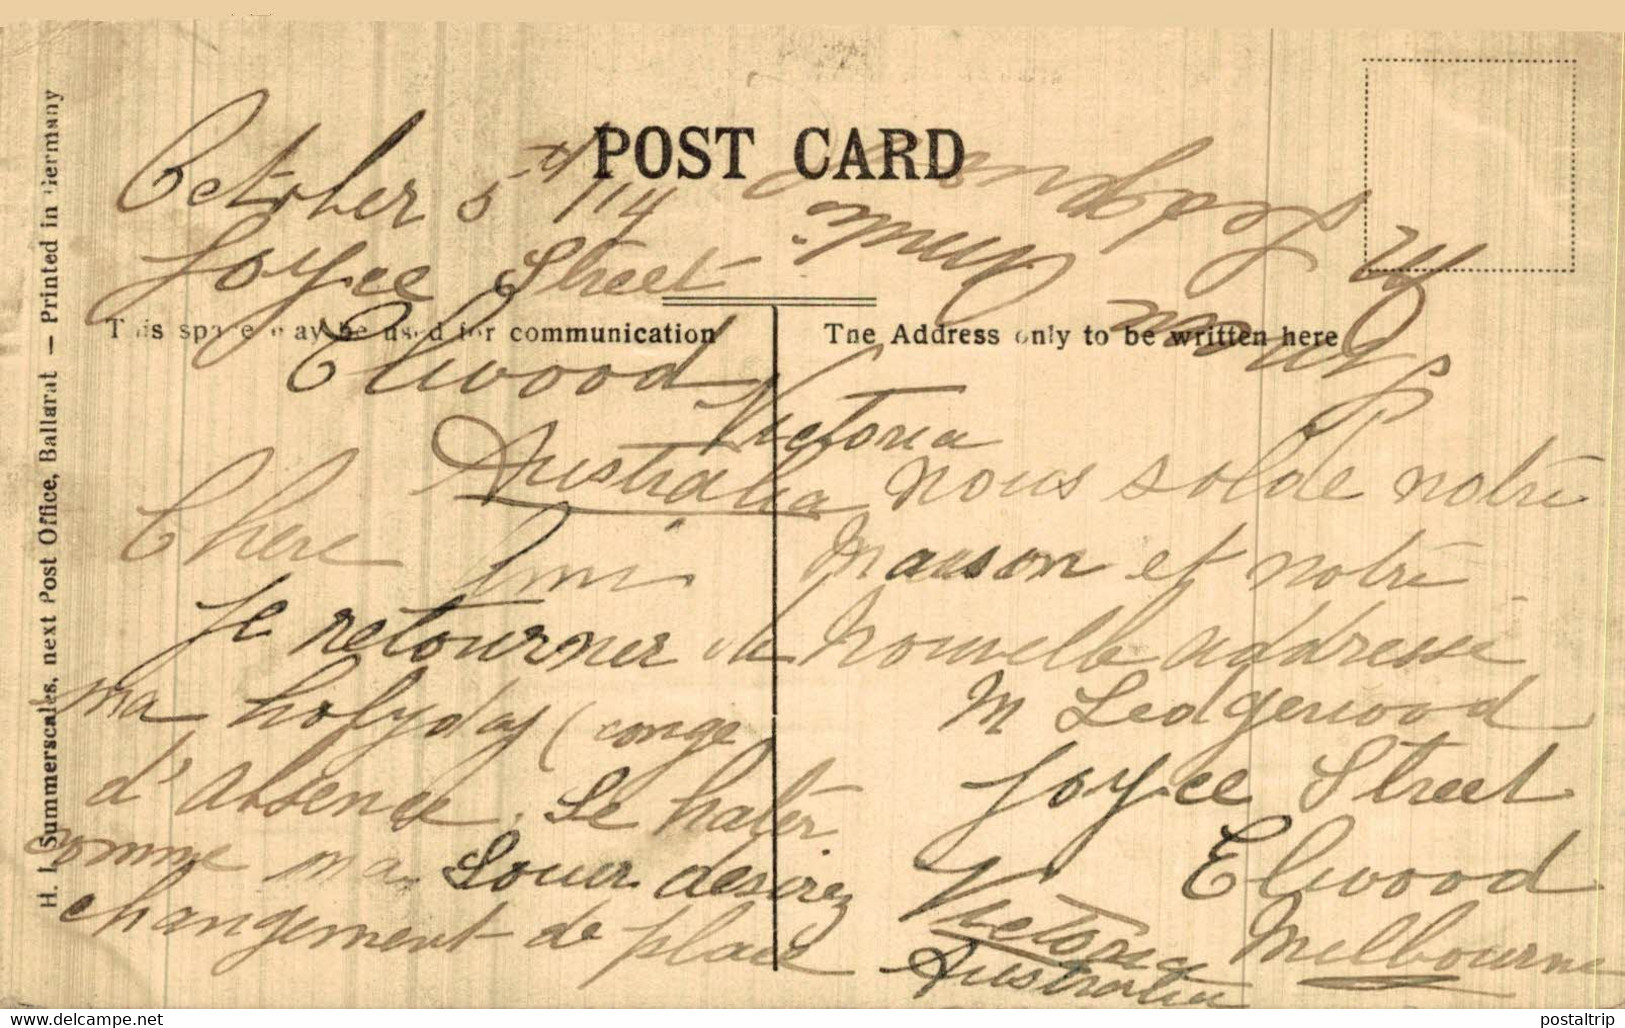 POST CARD
October 5th /14
Joyce Street
This space may be used for communication
The Address only to be written here
Elwood
Victoria
Australia
Chere Ami
Je retourner de
ma holyday (conge
d'absence. Se hater
comme ma Souer desirez
changement de place
nous solde notre
maison et notre
nouvelle addresse
M Ledgerwood
Joyce Street
Elwood
Melbourne
Victoria
Australia
Votre
H. J. Summerscales, next Post Office, Ballarat — Printed in Germany
postaltrip.com
postaltrip